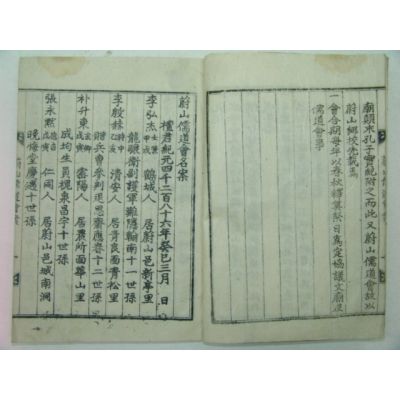 廟顛末孔子實紀附之而此又蔚山儒道會故以
蔚山鄉校本載焉
一會合期每年以春秋釋奠祭日爲定協議文廟及
儒道會事
蔚山儒道會名案
檀君紀元四千二百八十六年癸巳三月 日
李弘杰 鶴城人 居蔚山邑新亭里
龍驤衛副護軍翰南十一世孫
李 清安人 居青良面青松里
贈兵曹參判退思齋應春十二世孫
朴升東 密陽人 居農所面華山里
成均生員槐泉昌宇十世孫
張永熙 仁同人 居蔚山邑城南洞
晚 堂慶遇十世孫